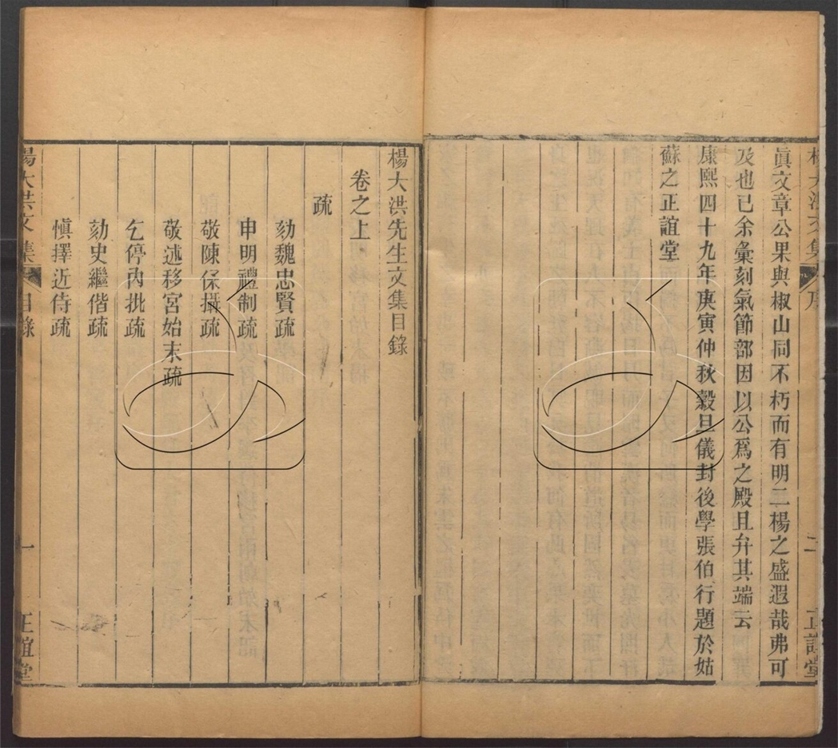 眞文章公果與椒山同不朽而有明二楊之盛遐哉弗可
及也已余彙刻氣節部因以公爲之殿且弁其端云
康熙四十九年庚寅仲秋穀旦儀封後學張伯行題於姑
蘇之正誼堂
楊大洪先生文集目錄
卷之上
疏
劾魏忠賢疏
申明禮制疏
敬陳保攝疏
敬述移宮始末疏
乞停內批疏
劾史繼偕疏
愼擇近侍疏
楊大洪文集 目錄 一 正誼堂